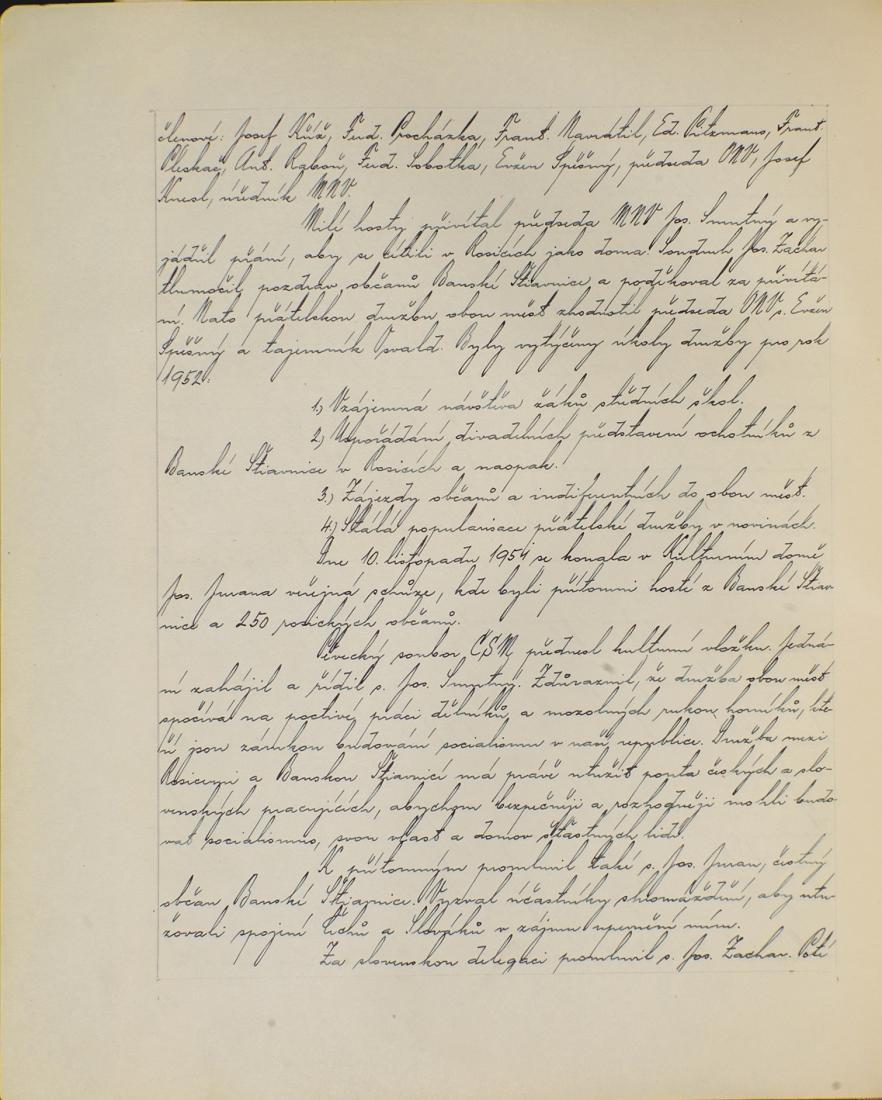 členové: Josef Kříž, Ferd. Procházka, Frant. Navrátil, Ed. Pitzmans, Frant.
Pleskač, Ant. Raboň, Ferd. Sobotka, Evžen Spěšný, předseda ONV, Josef
Knesl, úředník MNV.
Milé hosty přivítal předseda MNV Jos. Smutný a vy-
jádřil přání, aby se cítili v Rosicích jako doma. Soudruh Jos. Zachar
tlumočil pozdrav občanů Banské Štiavnice a poděkoval za přivítá-
ní. Nato přátelskou družbu obou měst zhodnotil předseda ONV s. Evžen
Spěšný a tajemník Osvald. Byly vytýčeny úkoly družby pro rok
1952:
1.) Vzájemná návštěva žáků středních škol.
2.) Uspořádání divadelních představení ochotníků z
Banské Štiavnice v Rosicích a naopak.
3.) Zájezdy občanů a indiferentních do obou měst.
4.) Stálá popularisace přátelské družby v novinách.
Dne 10. listopadu 1951 se konala v Kulturním domě
Jos. Jurana veřejná schůze, kde byli přítomni hosté z Banské Štiav-
nice a 250 rosických občanů.
Pěvecký soubor ČSM přednesl kulturní vložku. Jedná-
ní zahájil a řídil s. Jos. Smutný. Zdůraznil, že družba obou měst
spočívá na poctivé práci dělníků a mozolných rukou horníků, kte-
ří jsou zárukou budování socialismu v naší republice. Družba mezi
Rosicemi a Banskou Štiavnicí má právě utužit pouta českých a slo-
venských pracujících, abychom bezpečněji a rozhodněji mohli budo-
vat socialismus, svou vlast a domov šťastných lidí.
K přítomným promluvil také s. Jos. Juran, čestný
občan Banské Štiavnice. Vyzval účastníky shromáždění, aby utu-
žovali spojení Čechů a Slováků v zájmu upevnění míru.
Za slovenskou delegaci promluvil s. Jos. Zachar. Poté